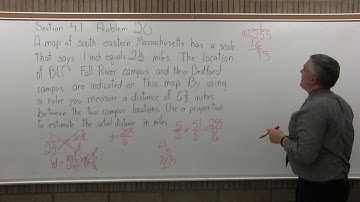 Section 4.1 Problem 20
A map at south eastern Massachusetts has a scale
that says 1 inch equals 2½ miles. The location
of BCC's Fall River campus and New Bedford
campus are indicated on this map. By using
a ruler, you measure a distance of 6⅜ inches
between the two campus locations. Use a proportion
to estimate the actual distance in miles.
d = 255/16
5/2 × 51/8 = 255/16
16 255
16
95